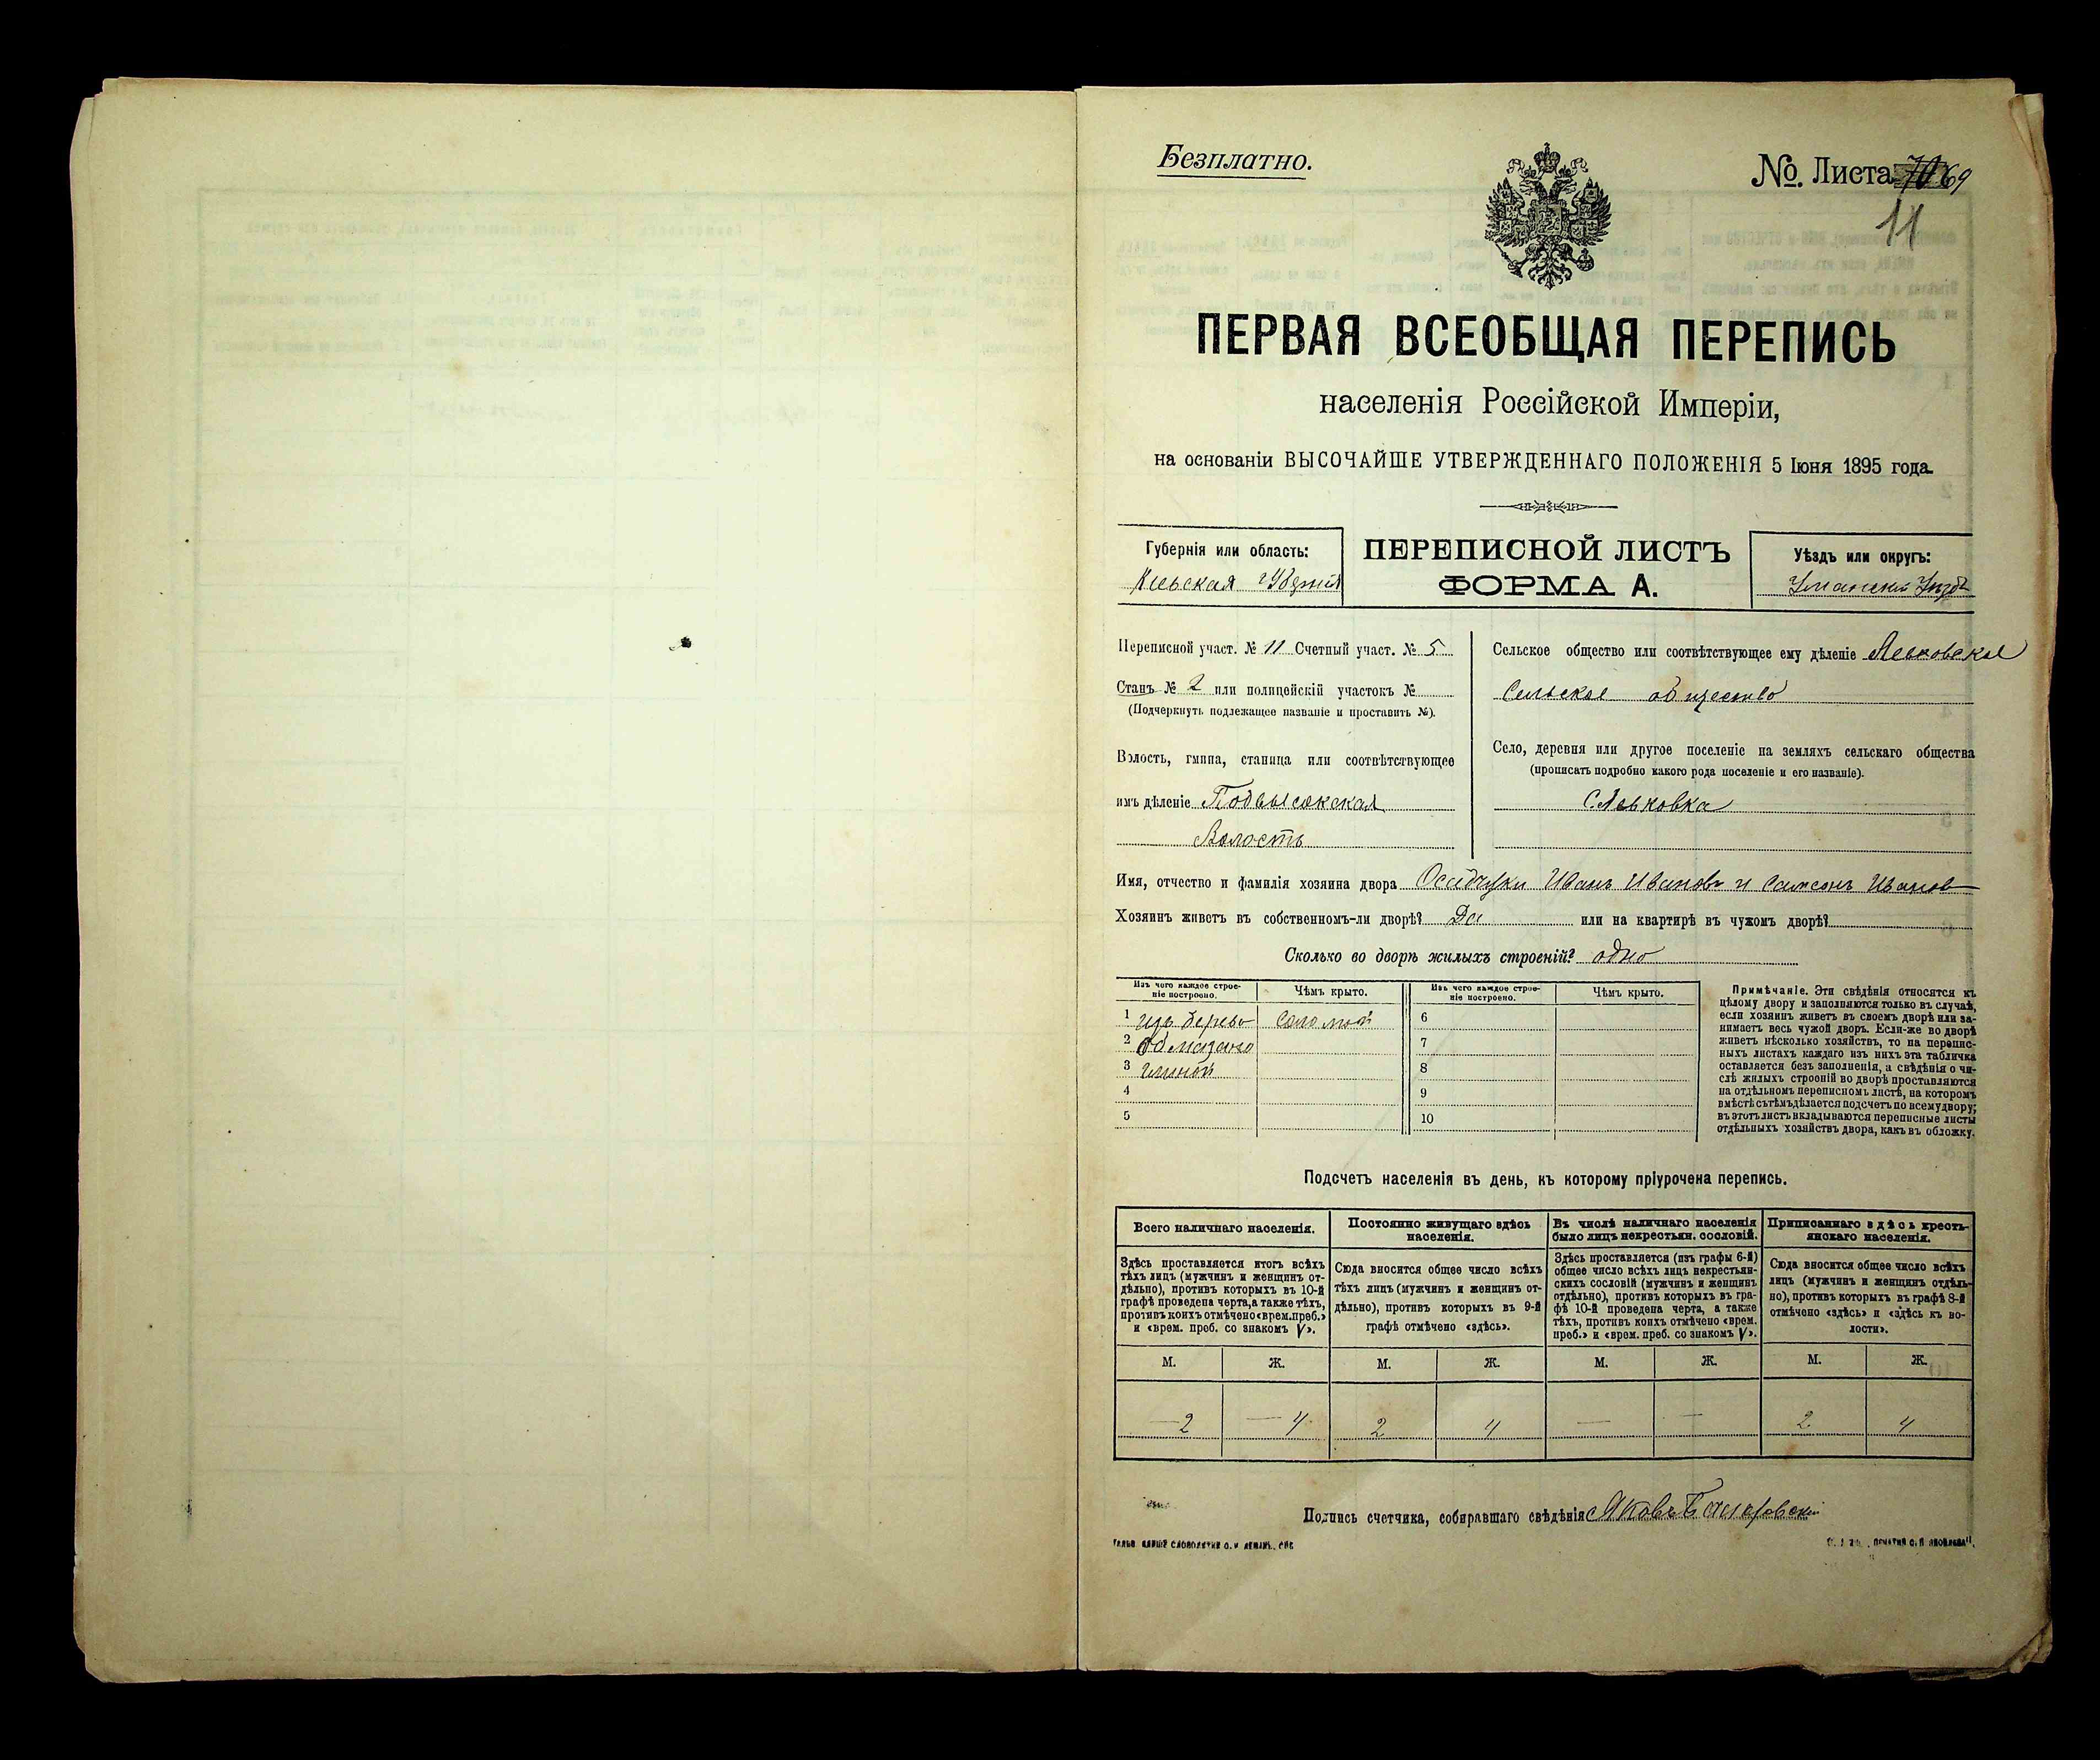 Безплатно.
№. Листа 69
11
ПЕРВАЯ ВСЕОБЩАЯ ПЕРЕПИСЬ
населенія Россійской Имперіи,
на основаніи ВЫСОЧАЙШЕ УТВЕРЖДЕННАГО ПОЛОЖЕНІЯ 5 Іюня 1895 года.
Губернія или область:
Кіевская губернія
ПЕРЕПИСНОЙ ЛИСТЪ
ФОРМА А.
Уѣздъ или округъ:
Уманскій Уѣздъ
Переписной участ. № 11 Счетный участ. № 5
Станъ № 2 или полицейскій участокъ №
(Подчеркнуть подлежащее названіе и проставить №).
Волость, гмина, станица или соотвѣтствующее
имъ дѣленіе Подвысокская
Волость
Сельское общество или соотвѣтствующее ему дѣленіе Левковское
Сельское общество
Село, деревня или другое поселеніе на земляхъ сельскаго общества
(прописать подробно какого рода поселеніе и его названіе).
С Левковка
Имя, отчество и фамилія хозяина двора Осадчуки Иванъ Ивановъ и Самсонъ Ивановъ
Хозяинъ живетъ въ собственномъ-ли дворѣ? Да или на квартирѣ въ чужомъ дворѣ?
Сколько во дворѣ жилыхъ строеній? одно
Изъ чего каждое строе-
ніе построено.
Чѣмъ крыто.
Изъ чего каждое строе-
ніе построено.
Чѣмъ крыто.
1 изъ дерева соломой 6
2 обмазано 7
3 глиной 8
4 9
5 10
Примѣчаніе. Эти свѣдѣнія относятся къ
цѣлому двору и заполняются только въ случаѣ,
если хозяинъ живетъ въ своемъ дворѣ или за-
нимаетъ весь чужой дворъ. Если-же во дворѣ
живетъ нѣсколько хозяйствъ, то на перепис-
ныхъ листахъ каждаго изъ нихъ эта табличка
оставляется безъ заполненія, а свѣдѣнія о чи-
слѣ жилыхъ строеній во дворѣ проставляются
на отдѣльномъ переписномъ листѣ, на которомъ
вмѣстѣ съ тѣмъ дѣлается подсчетъ по всему двору;
въ этотъ листъ вкладываются переписные листы
отдѣльныхъ хозяйствъ двора, какъ въ обложку.
Подсчетъ населенія въ день, къ которому пріурочена перепись.
Всего наличнаго населенія.
Здѣсь проставляется итогъ всѣхъ
тѣхъ лицъ (мужчинъ и женщинъ от-
дѣльно), противъ которыхъ въ 10-й
графѣ проведена черта, а также тѣхъ,
противъ коихъ отмѣчено «врем. преб.»
и «врем. преб. со знакомъ V».
Постоянно живущаго здѣсь
населенія.
Сюда вносится общее число всѣхъ
тѣхъ лицъ (мужчинъ и женщинъ от-
дѣльно), противъ которыхъ въ 9-й
графѣ отмѣчено «здѣсь».
Въ числѣ наличнаго населенія
было лицъ некрестьян. сословій.
Здѣсь проставляется (изъ графы 6-й)
общее число всѣхъ лицъ некрестьян-
скихъ сословій (мужчинъ и женщинъ
отдѣльно), противъ которыхъ въ гра-
фѣ 10-й проведена черта, а также
тѣхъ, противъ коихъ отмѣчено «врем.
преб.» и «врем. преб. со знакомъ V».
Приписаннаго здѣсь кресть-
янскаго населенія.
Сюда вносится общее число всѣхъ
лицъ (мужчинъ и женщинъ отдѣль-
но), противъ которыхъ въ графѣ 8-й
отмѣчено «здѣсь» и «здѣсь къ во-
лости».
М. Ж. М. Ж. М. Ж. М. Ж.
— 2 — 4 2 4 — — 2 4
Подпись счетчика, собиравшаго свѣдѣнія Яковъ